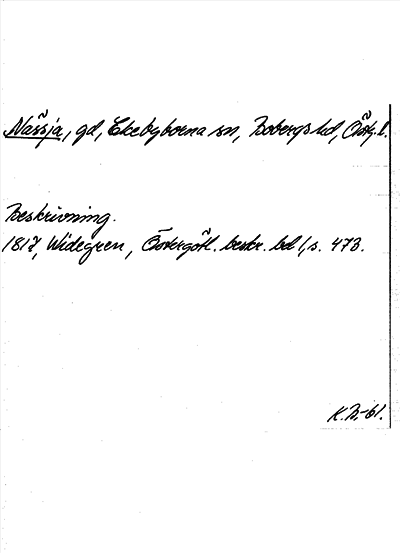 Nässja, gd, Ekebyborna sn, Bobergs hd, Östg.l.
Beskrivning.
1817, Widegren, Östergötl. beskr. bd 1, s. 473.
K.B.-61.